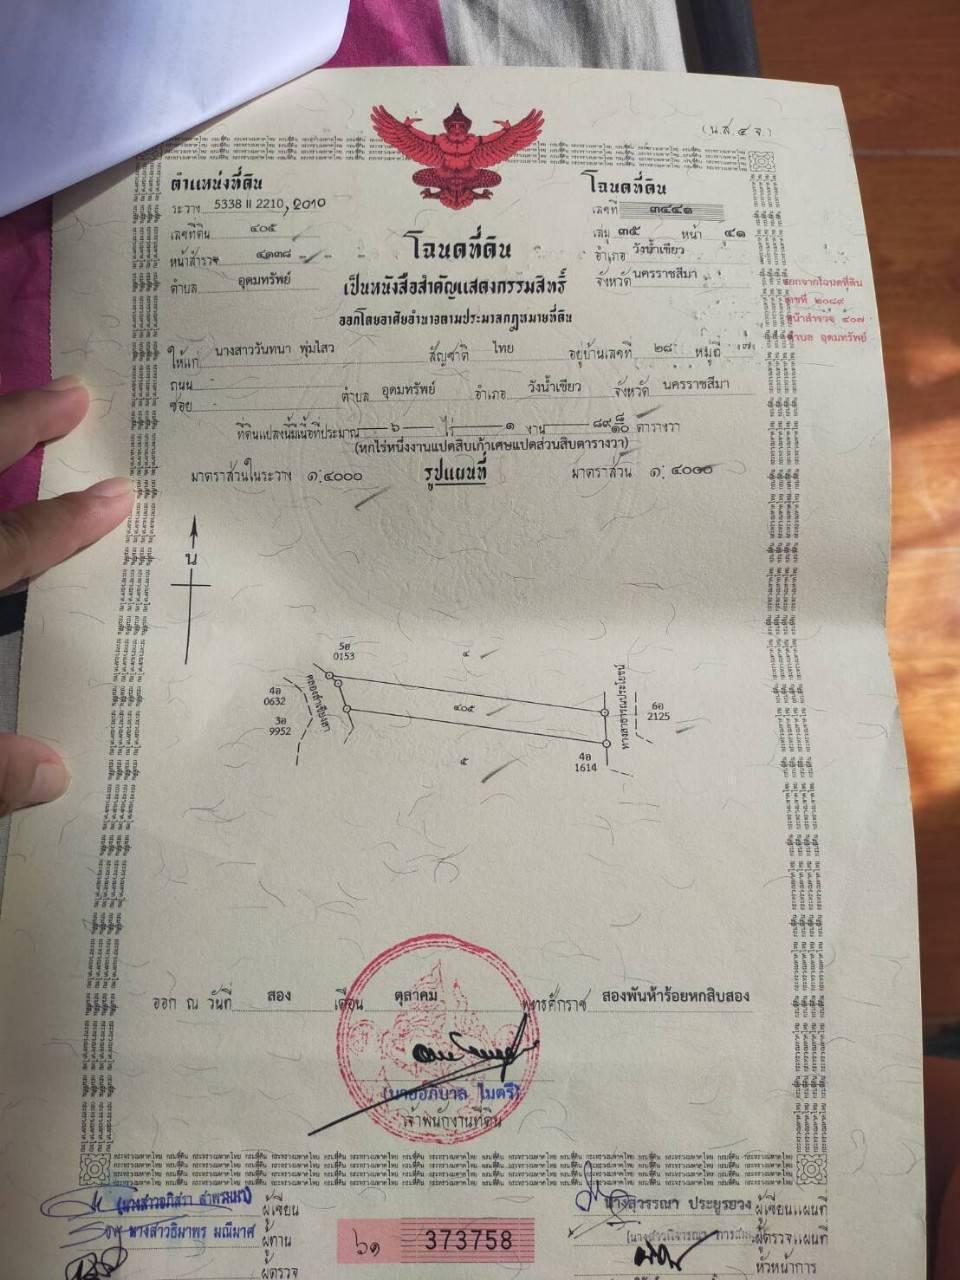 (น.ส.๔ จ.)
ตำแหน่งที่ดิน
ระวาง 5338 II 2210, 2010
เลขที่ดิน ๔๐๕
หน้าสำรวจ ๔๓๓๘
ตำบล อุดมทรัพย์
โฉนดที่ดิน
เลขที่ ๓๔๔๑
เล่ม ๓๕ หน้า ๔๑
อำเภอ วังน้ำเขียว
จังหวัด นครราชสีมา
โฉนดที่ดิน
เป็นหนังสือสำคัญแสดงกรรมสิทธิ์
ออกโดยอาศัยอำนาจตามประมวลกฎหมายที่ดิน
ออกจากโฉนดที่ดิน
เลขที่ ๒๐๘๙
หน้าสำรวจ ๔๐๗
ตำบล อุดมทรัพย์
ให้แก่ นางสาววันทนา พุ่มไสว สัญชาติ ไทย อยู่บ้านเลขที่ ๒๘ หมู่ที่ ๗
ถนน
ซอย ตำบล อุดมทรัพย์ อำเภอ วังน้ำเขียว จังหวัด นครราชสีมา
ที่ดินแปลงนี้มีเนื้อที่ประมาณ ๖ ไร่ ๑ งาน ๘๙ ๘/๑๐ ตารางวา
(หกไร่หนึ่งงานแปดสิบเก้าเศษแปดส่วนสิบตารางวา)
มาตราส่วนในระวาง ๑:๔๐๐๐ รูปแผนที่ มาตราส่วน ๑:๔๐๐๐
น
5อ
0153
๔
4อ
0632
คลองลำเชียงสา
3อ
9952
๔๐๕
ทางสาธารณประโยชน์
6อ
2125
๕
4อ
1614
ออก ณ วันที่ สอง เดือน ตุลาคม พุทธศักราช สองพันห้าร้อยหกสิบสอง
(นายอภิบาล ไมตรี)
เจ้าพนักงานที่ดิน
ผู้เขียน
นางสาวธิมาพร มณีมาศ ผู้ทาน
ผู้ตรวจ
๖๑ 373758
นางสุวรรณา ประยูรยวง ผู้เขียนแผนที่
ผู้ตรวจแผนที่
หัวหน้าการ